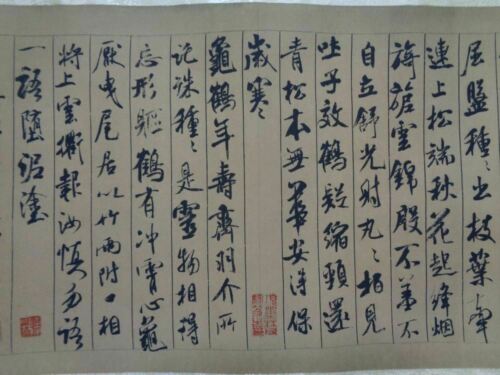 屈盤種々出枝葉牽
連上松端秋花起絳烟
旖旎雲錦殷不羞不
自立舒光射丸々柏見
吐子效鶴疑縮頸還
青松本無華安得保
歲寒
龜鶴年壽齊羽介所
託殊種々是靈物相得
忘形軀鶴有冲霄心龜
厭曳尾居以竹兩附口相
將上雲衢報汝慎勿語
一語墮泥塗